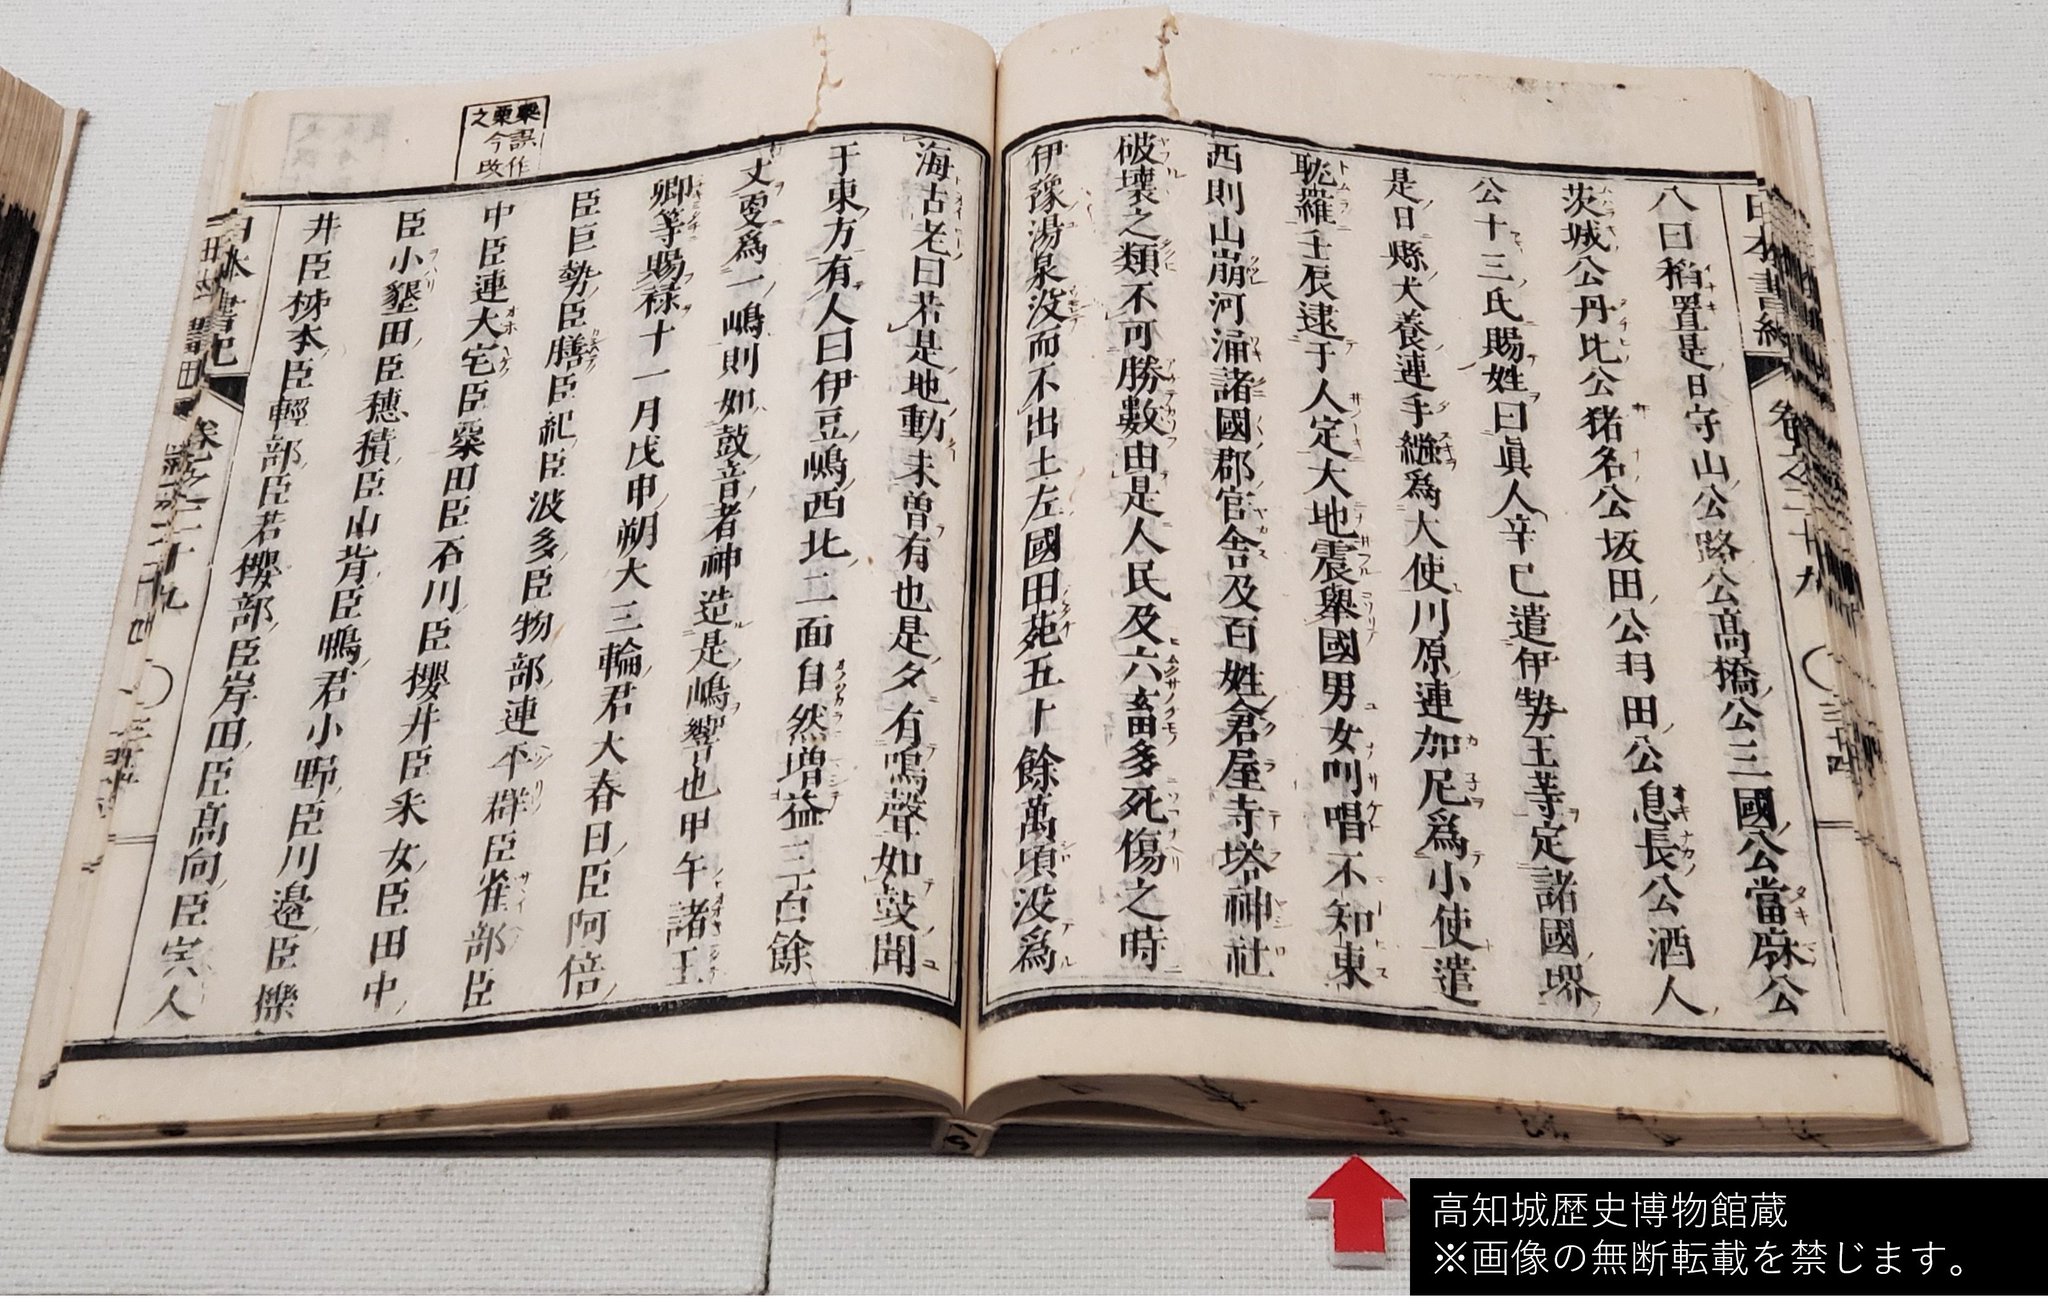 八曰稻置是日守山公路公高橋公三國公當麻公
茨城公丹比公猪名公坂田公羽田公息長公酒人
公十三氏賜姓曰眞人辛巳遣伊勢王等定諸國堺
是日縣犬養連手繦爲大使川原連加尼爲小使遣
耽羅壬辰逮于人定大地震擧國男女叫唱不知東
西則山崩河涌諸國郡官舍及百姓倉屋寺塔神社
破壞之類不可勝數由是人民及六畜多死傷之時
伊豫湯泉没而不出土左國田苑五十餘萬頃没爲
海古老曰若是地動未曽有也是夕有鳴聲如鼓聞
于東方有人曰伊豆嶋西北二面自然増益三百餘
丈更爲一嶋則如鼓音者神造是嶋響也甲午諸王
卿等賜禄十一月戊申朔大三輪君大春日臣阿倍
臣巨勢臣膳臣紀臣波多臣物部連平群臣雀部臣
中臣連大宅臣粟田臣石川臣櫻井臣采女臣田中
臣小墾田臣穗積臣山背臣鴨君小野臣川邊臣櫟
井臣柹本臣輕部臣若櫻部臣岸田臣高向臣宍人
日本書紀 卷之二十九
誤作
今改
之
高知城歴史博物館蔵
※画像の無断転載を禁じます。